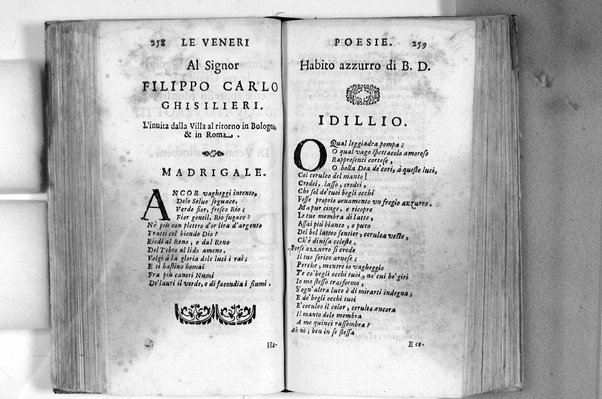 258 LE VENERI
Al Signor
FILIPPO CARLO
GHISILIERI.
L'inuita dalla Villa al ritorno in Bologna,
& in Roma.
MADRIGALE.
ANCOR vagheggi intento,
Dele Selue seguace,
Verde fior, fresco Rio;
Fior gentil, Rio fugace?
Nè più con plettro d'or lira d'argento
Tratti col biondo Dio?
Riedi al Reno, e dal Reno
Del Tebro al lido ameno.
Volgi à la gloria dele luci i rai;
E ti bastino homai
Fra più canori Numi
De' lauri il verde, e di facondia i fiumi.
Ha-
POESIE. 259
Habito azzurro di B. D.
IDILLIO.
O Qual leggiadra pompa;
O qual vago spettacolo amoroso
Rappresenti cortese,
O bella Dea de' cori, à queste luci,
Col ceruleo del manto!
Credei, lasso, credei,
Che sol de' tuoi begli occhi
Fosse proprio ornamento un fregio azzurro.
Ma pur cinge, e ricopre
Le tue membra di latte,
Assai più bianco, e puro
Del bel latteo sentier, cerulea veste,
Ch'è diuisa celeste.
Forse azzurro si crede
Il tuo serico arnese;
Perche, mentre io vagheggio
Te co' begli occhi tuoi, ne' cui be' giri
Io me stesso trasformo,
S'ogn'altra luce è di mirarti indegna;
E de' begli occhi tuoi
E' ceruleo il color, cerulco ancora
Il manto dele membra
A me quinci rassembra?
Ah nò; ben in se stessa
E ce-